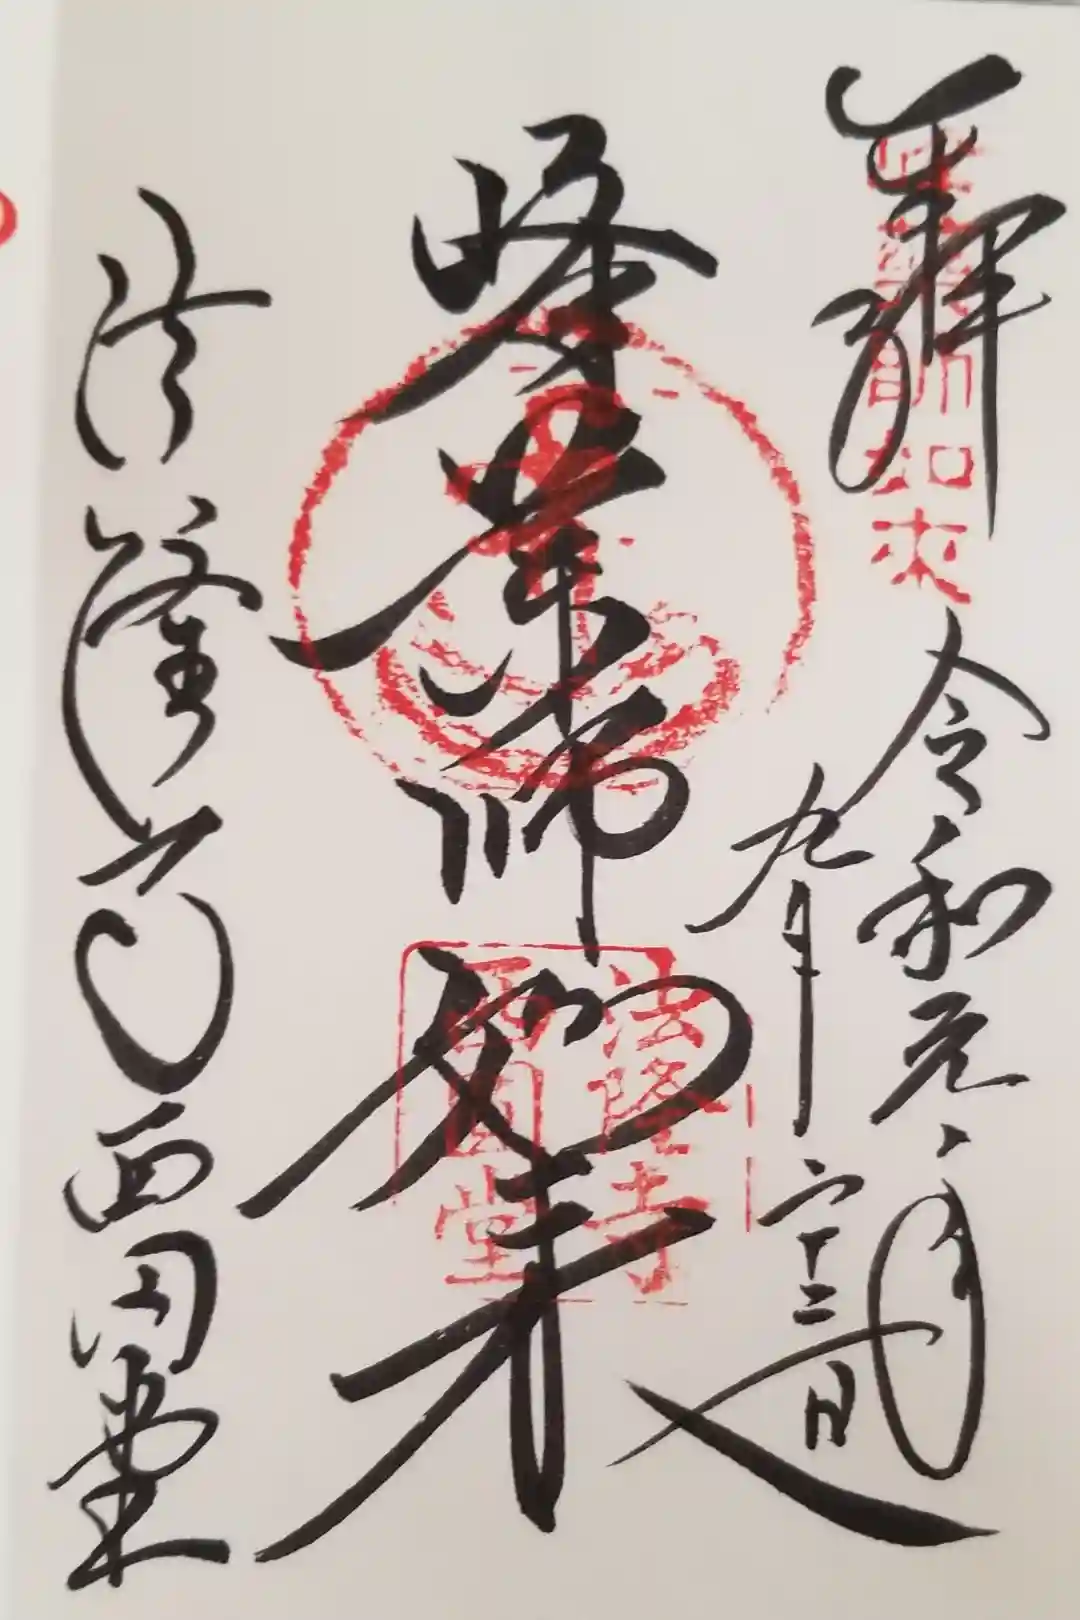 奉拝
令和元年
九月二十二日
峰薬師如来
法隆寺
西円堂
師如來
法隆寺
西圓堂